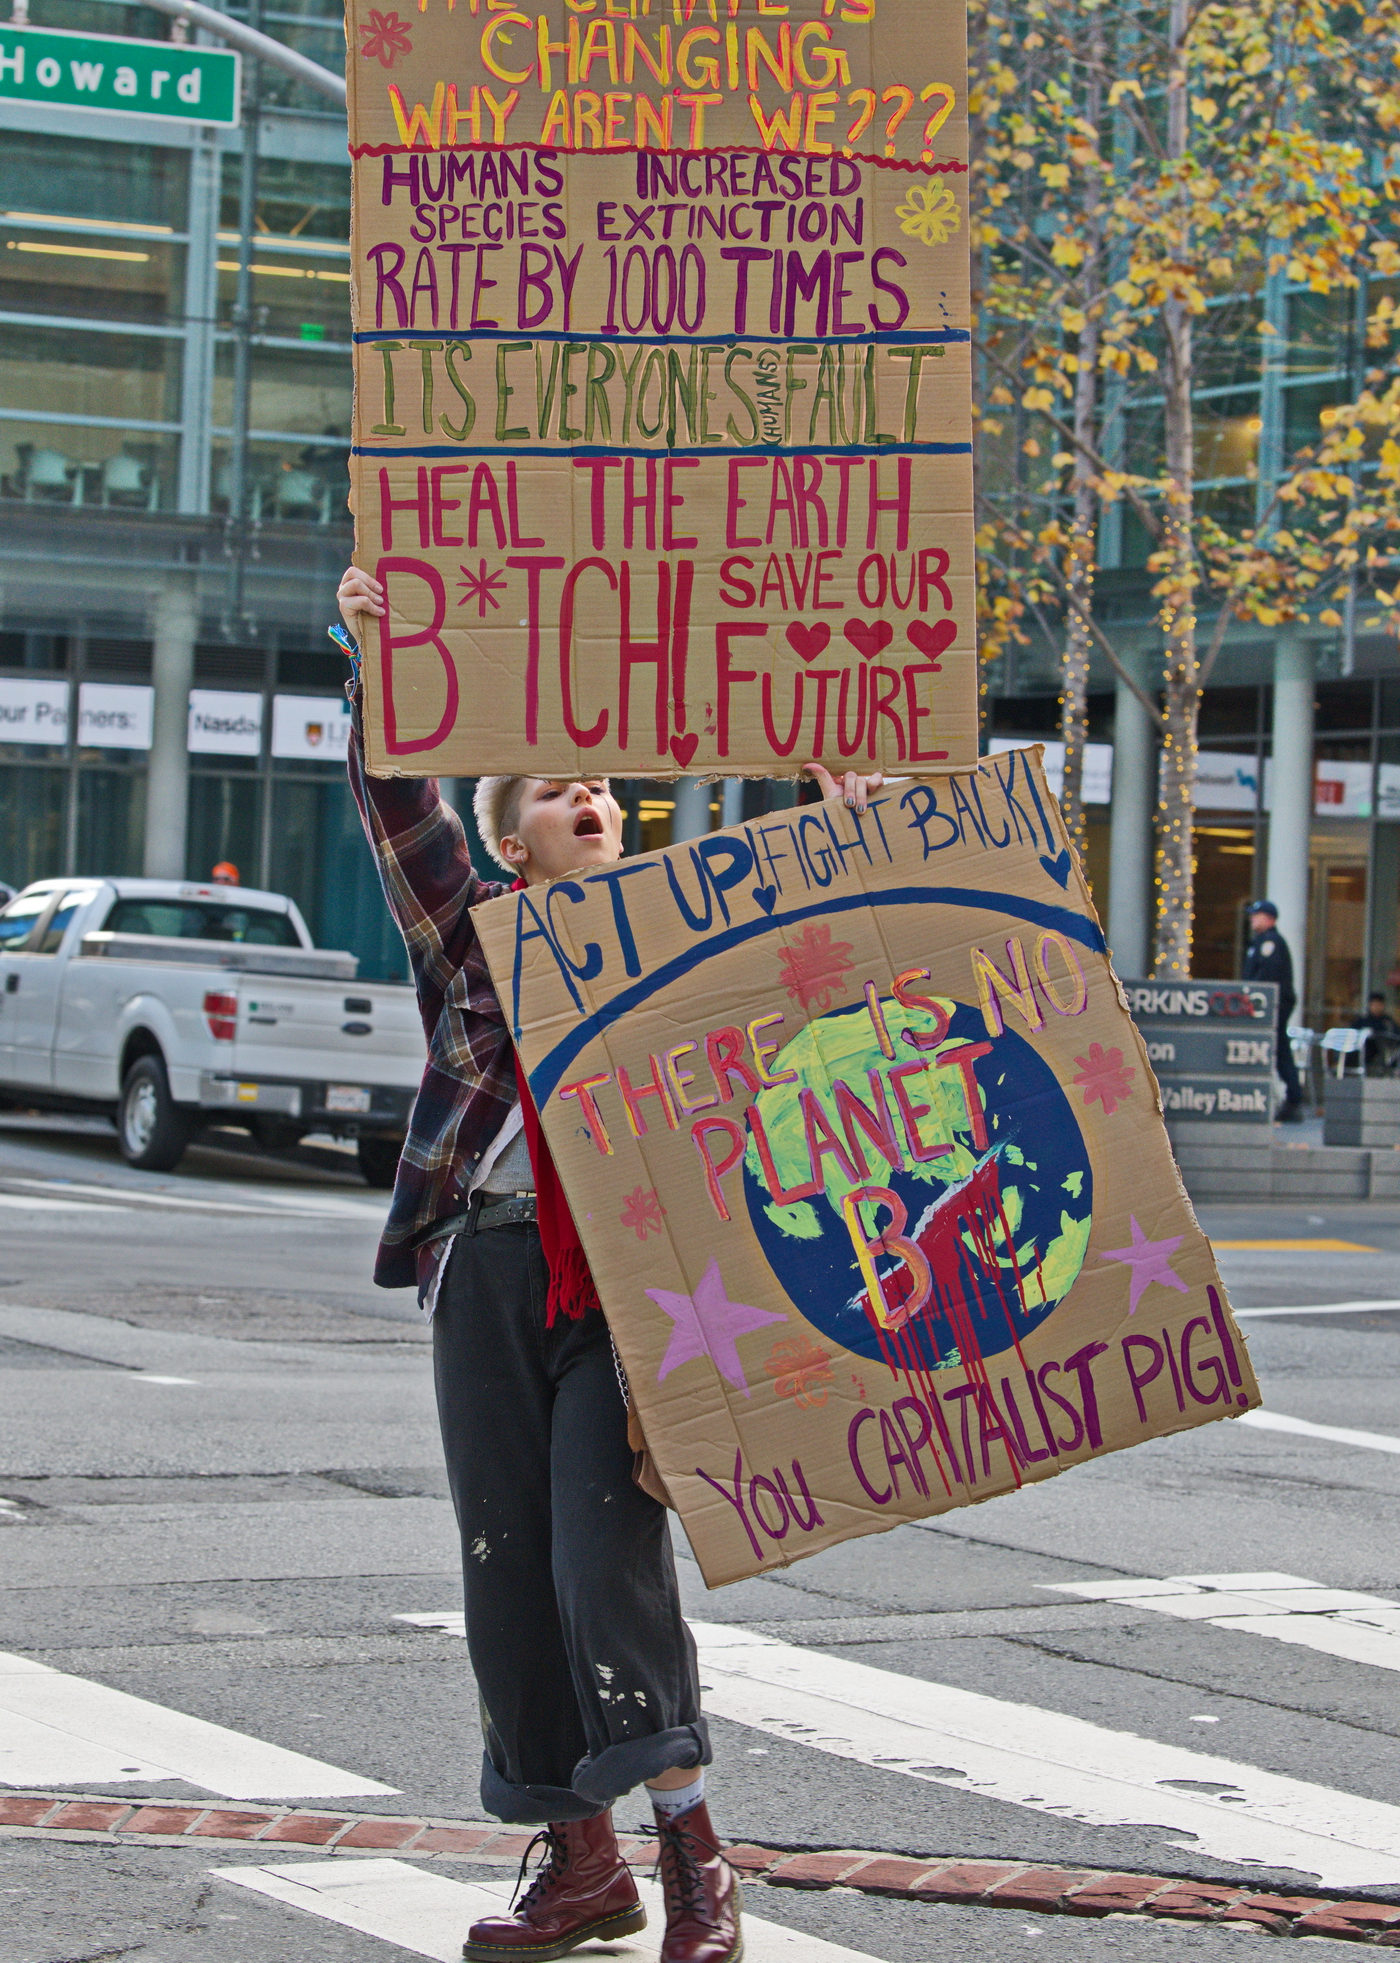 Howard
THE CLIMATE IS
CHANGING
WHY AREN'T WE???
HUMANS INCREASED
SPECIES EXTINCTION
RATE BY 1000 TIMES
IT'S EVERYONE'S (HUMANS) FAULT
HEAL THE EARTH
B*TCH! SAVE OUR
FUTURE
our Partners:
Nasda
ACT UP! FIGHT BACK!
THERE IS NO
PLANET
B
YOU CAPITALIST PIG!
RKINS COIE
on IBM
Valley Bank